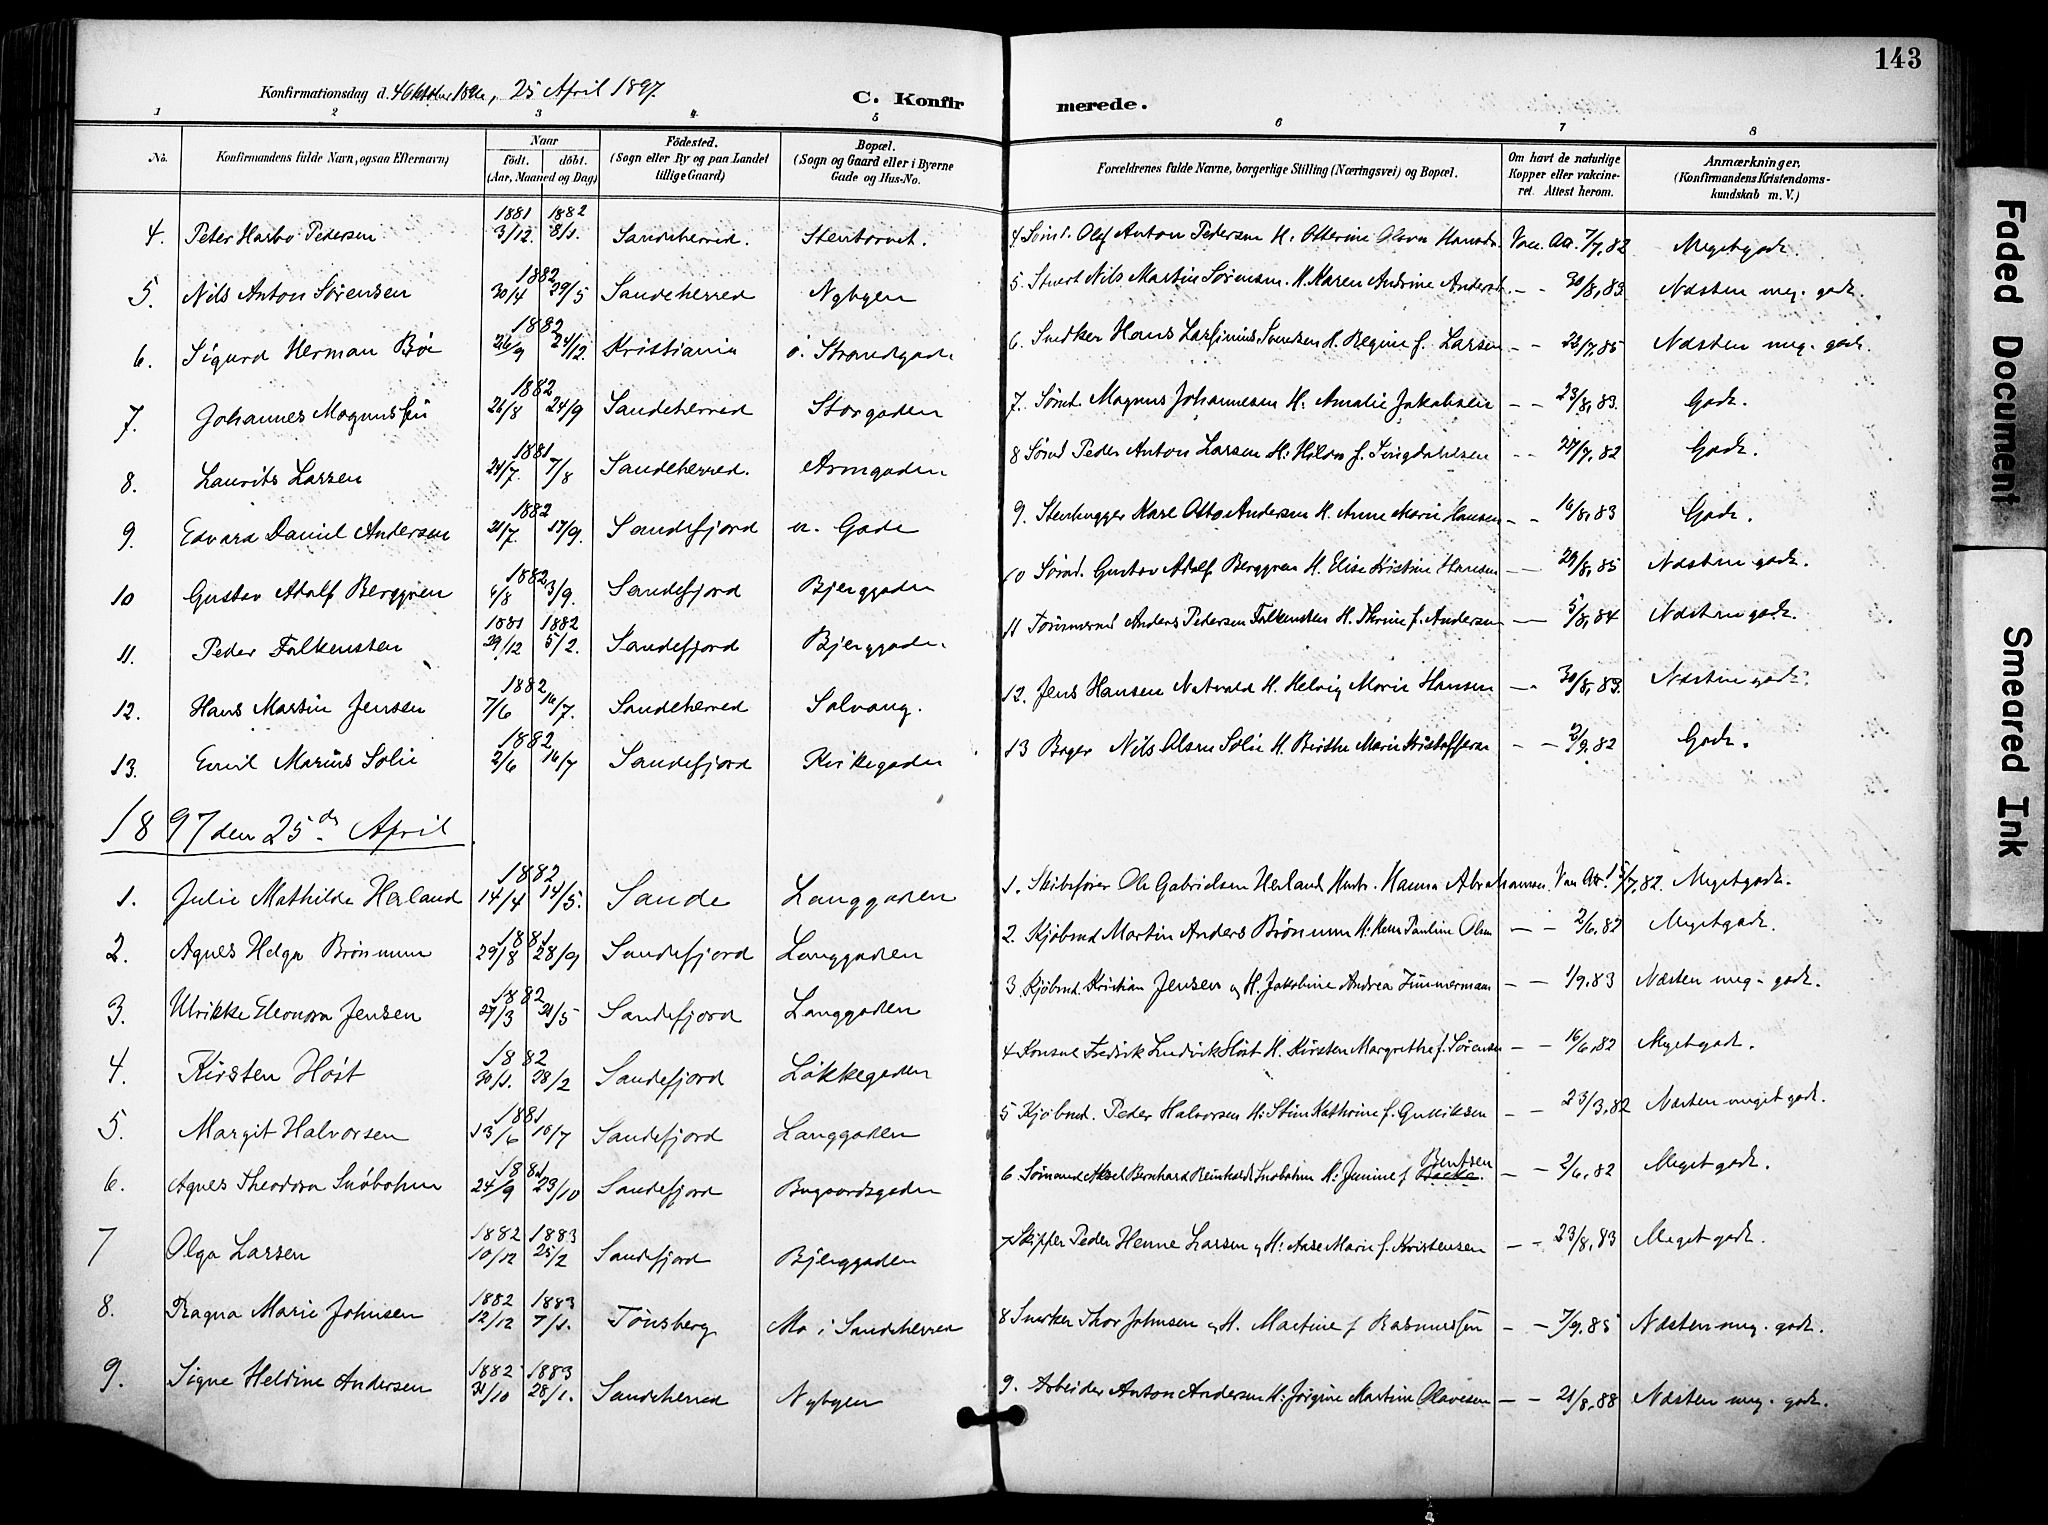 143
Konfirmationsdag d. 4 Oktober 1896, 25 April 1897.
C. Konfirmerede.
1 2 3 4 5 6 7 8
No.
Konfirmandens fulde Navn, ogsaa Efternavn)
Naar
födt. döbt.
(Aar, Maaned og Dag)
Födested.
(Sogn eller By og paa Landet
tillige Gaard)
Bopæl.
(Sogn og Gaard eller i Byerne
Gade og Hus-No.
Forældrenes fulde Navne, borgerlige Stilling (Næringsvei) og Bopæl.
Om havt de naturlige
Kopper eller vakcine-
ret. Attest herom.
Anmærkninger.
(Konfirmandens Kristendoms-
kundskab m. V.)
4. Peter Harbo Pedersen 1881 3/12. 1882 8/1. Sandeherred. Stentorvet. 4 Sömd. Olef Anton Pedersen H. Otterine Olava Vac. Att. 7/7,82 Meget godt.
5. Nils Anton Sørensen 1882 30/4 29/5 Sandeherred Nybyen 5. Nils Martin Sørensen H. Karen Andrine — - 30/8,83 Næsten meg. godt.
6. Sigurd Herman Bøe 1882 26/9 24/12. Kristiania ö. Strandgade 6. Snedker Hans Svendsen H. Regine f. Larsen — - 23/7,85 Næsten meg. godt.
7. Johannes Magnussen 1882 26/8 24/9 Sandeherred Storgaden 7. Sömd. Magnus Johannesen H. Amalie Jakobsen — - 23/8,83. Godt.
8. Laurits Larsen 1881 24/7. 7/8 Sandeherred. Armgaden 8 Sömd Peder Anton Larsen H. Hilda f. - - 27/7,82 Godt.
9. Edvard Daniel Andersen 1882 21/7. 17/9. Sandefjord n. Gade 9. Stenhugger Karl Otto Andersen H. Anne Marie Hansen — - 16/8,83 Godt.
10 Gustav Adolf Berggren 1882 6/8 3/9. Sandefjord Bjerggaden 10 Sömd. Gustav Adolf Berggren H. Elise Kristine Hansen — 29/8,85 Næsten godt.
11. Peder Falkensten 1881 29/12 1882 5/2. Sandefjord Bjerggaden 11 Tömmermd Anders Pedersen Falkensten H. Thrine f. Andersen — 5/8,84 Næsten godt.
12. Hans Martin Jensen 1882 7/6 16/7. Sandeherred Solvang. 12. Jens Hansen Natvald H. Helvig Marie Hansen — - 30/8,83. Næsten godt.
13. Emil Marius Solie 1882 2/6 16/7 Sandefjord Kirkegaden 13 Bager Nils Olsen Solie H. Birthe Marie Kristoffersen — - 2/9.82 Godt.
1897 den 25de April
1. Julie Mathilde Herland 1882 14/4 14/5. Sande Langgaden 1. Skibsförer Ole Gabrielsen Herland Hustr. Hanna Abrahamsen. Vac Att. 15/7,82. Meget godt.
2. Agnes Helga Brönmum 1881 29/8 28/9 Sandefjord Langgaden 2. Kjöbmd Martin Anders Brönmum H. Pauline Olsen — - 2/6,82 Meget godt.
3. Ulrikke Eleonora Jensen 1882 27/3 21/5 Sandefjord Langgaden 3. Kjöbmd. Kristian Jensen og H. Jakobine Andrea Zimmermann — - 1/9.83 Næsten meg. godt.
4. Kirsten Höst 1882 20/1. 28/2 Sandefjord Lökkegaden 4 Konsul Fredrik Ludvik Höst H. Kirsten Margrethe f. Sörensen — - 16/6,82 Meget godt.
5. Margit Halvorsen 1881 13/6 10/7 Sandefjord Langgaden 5 Kjöbmd. Peder Halvorsen H. Stine Kathrine f. — - 23/3.82 Næsten meget godt.
6. Agnes Theodora Snöbohm 1881 24/9 23/10 Sandefjord Bugaardsgaden 6 Sömand Aksel Bernhard Reinholdt Snöbohm H. Jenine f Bentsen — - 2/6,82 Meget godt.
7 Olga Larsen 1882 10/12 1883 25/2 Sandefjord Bjerggaden 7 Skipper Peder Henne Larsen og H. Aase Marie f. Kristensen — - 23/8,83 Meget godt.
8. Ragna Marie Johnsen 1882 12/12 1883 7/1. Tönsberg Mo i Sandeherred 8 Snedker Thor Johnsen og H. Martine f Rasmussen — - 7/9.85 Næsten meg. godt.
9. Signe Heldine Andersen 1882 31/10 1883 28/1. Sandeherred Nybyen 9. Arbeider Anton Andersen H. Jörgine Martine Olavesen — - 21/8,88 Næsten meg. godt.
Faded Document
Smeared Ink